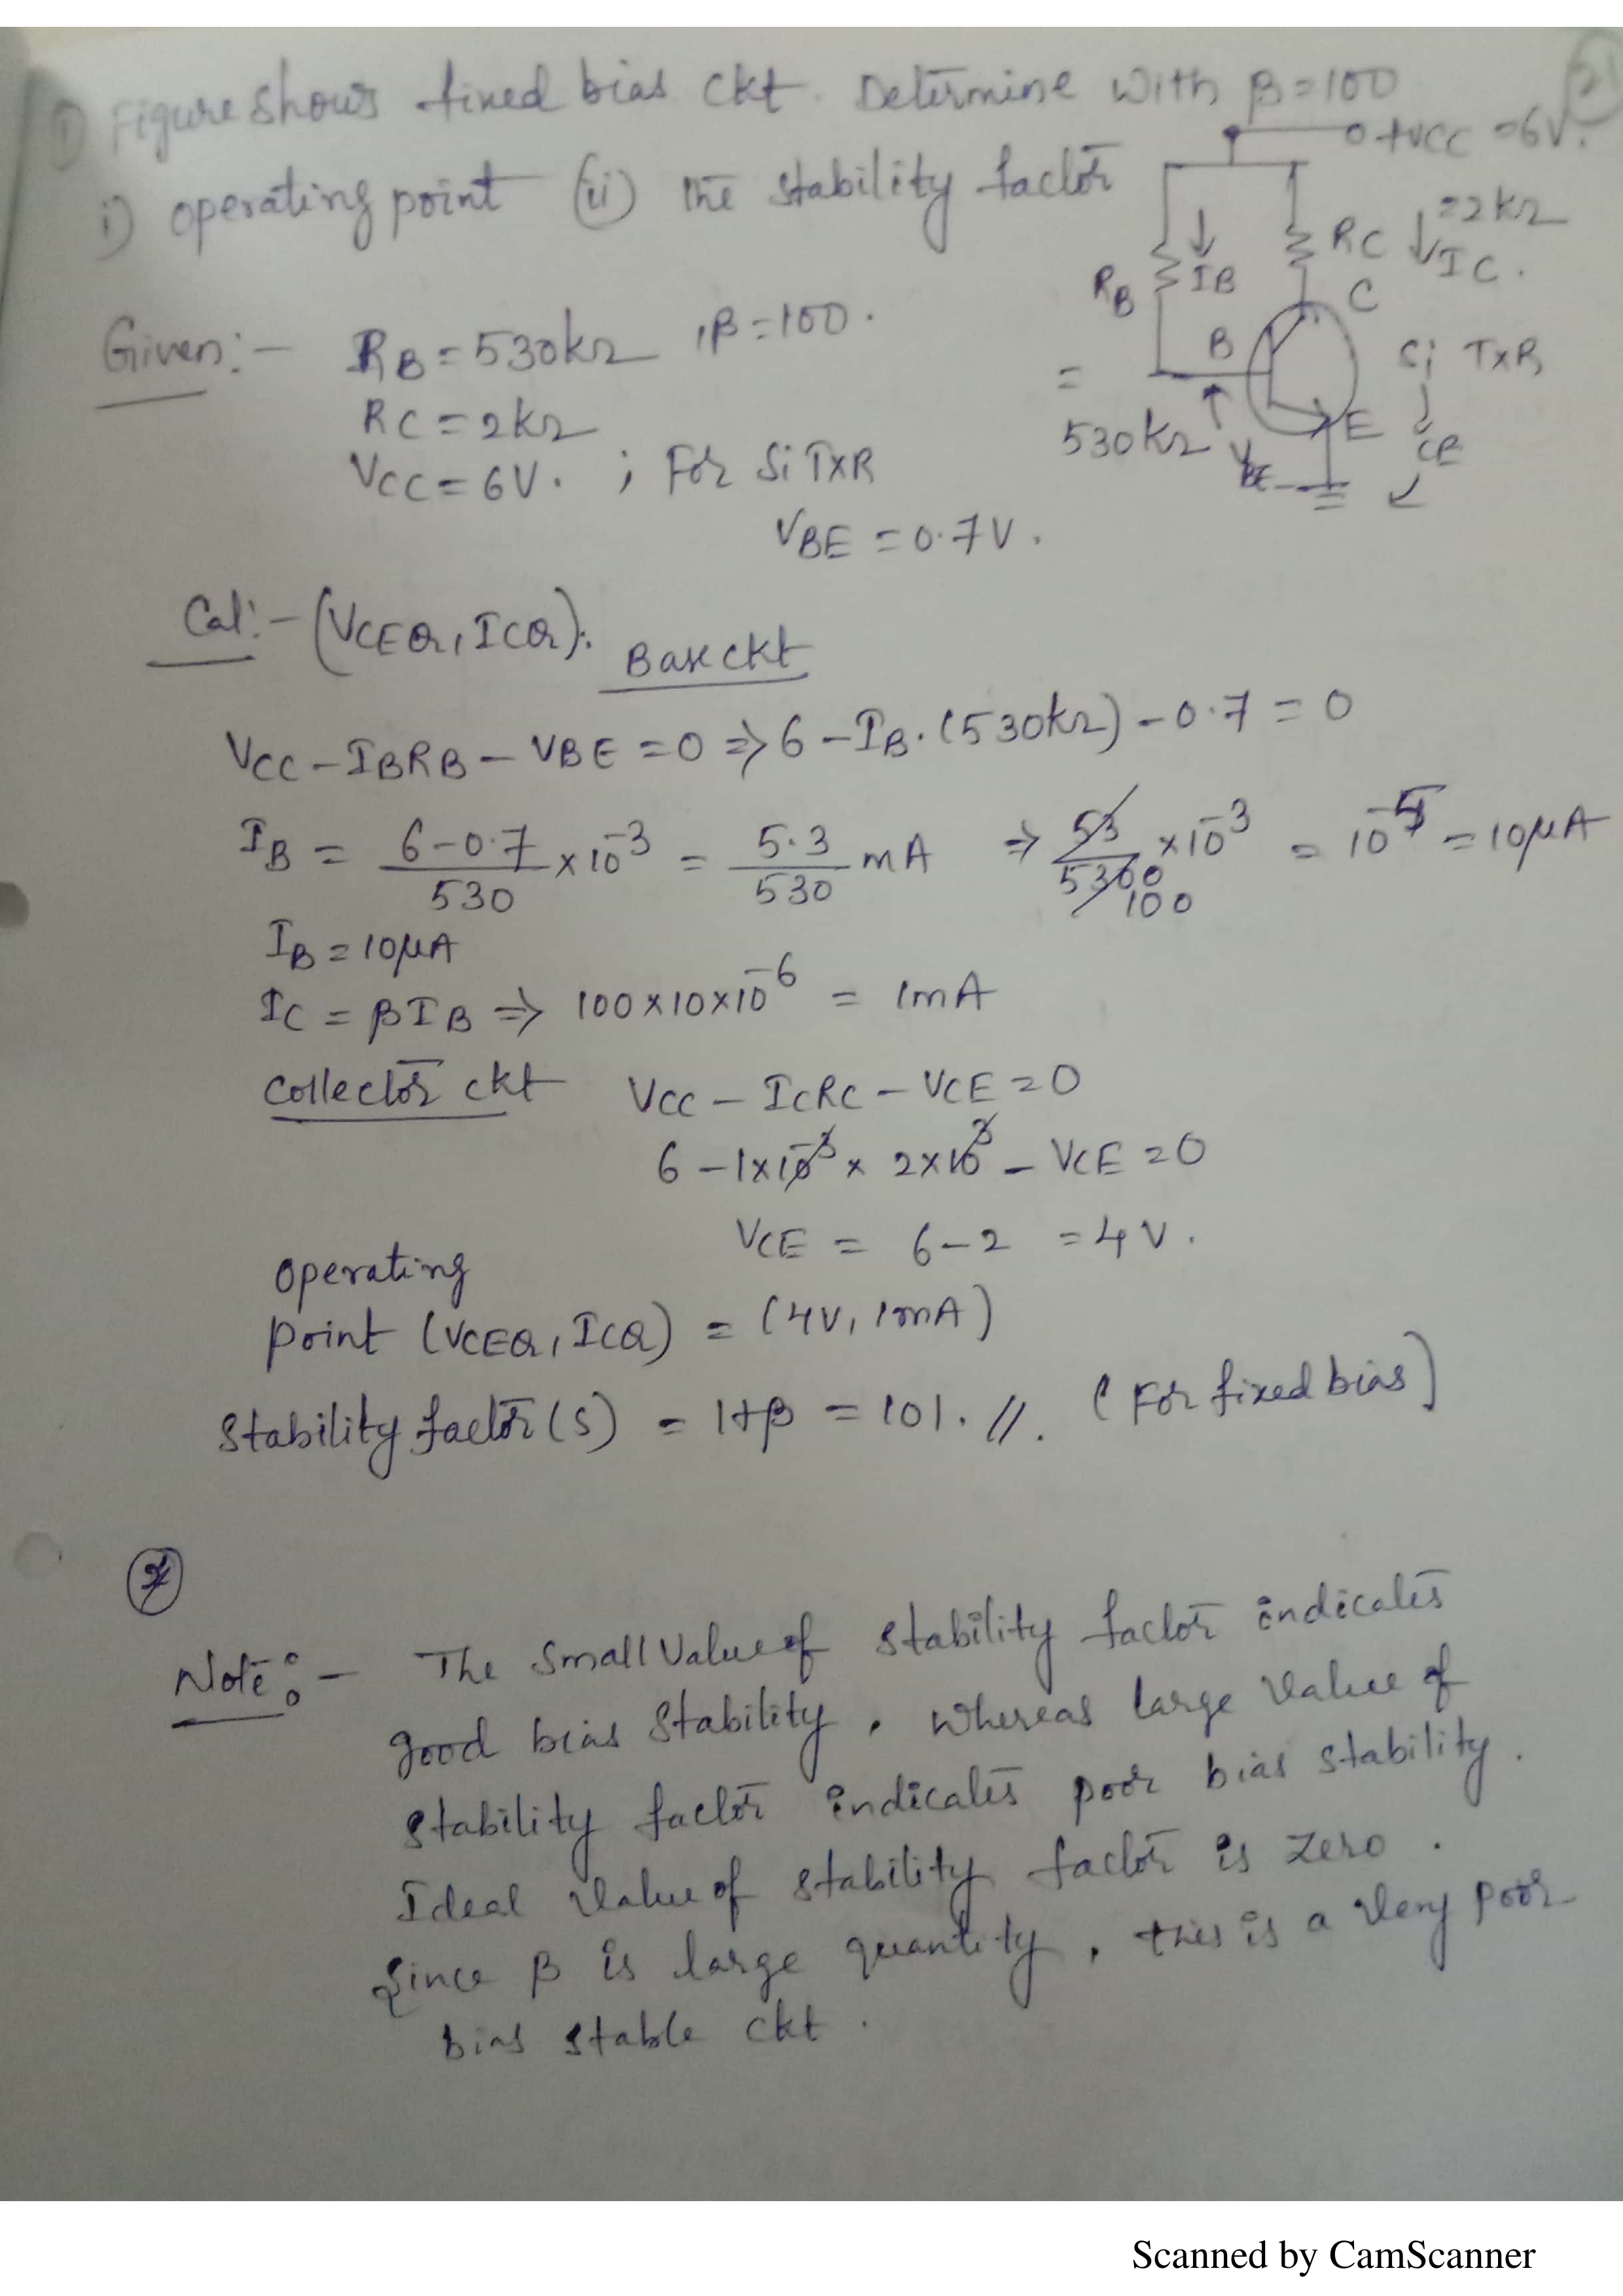 ① Figure shows fixed bias ckt. Determine with β=100
i) operating point (ii) the stability factor
+VCC =6V.
=2kΩ
RC ↓IC.
RB ↓IB
C
B
Si TXR
E
CE
= 530kΩ
VBE
Given:- RB=530kΩ, β=100.
RC=2kΩ
VCC=6V. ; For Si TXR
VBE=0.7V.
Cal:- (VCEQ, ICQ). Base ckt
VCC-IBRB-VBE=0 ⇒ 6-IB.(530kΩ)-0.7=0
IB = 6-0.7/530 ×10⁻³ = 5.3/530 mA ⇒ 53/5300 100 ×10⁻³ = 10⁻⁵ = 10μA
IB=10μA
IC=βIB ⇒ 100×10×10⁻⁶ = 1mA
Collector ckt VCC-ICRC-VCE=0
6-1×10⁻³×2×10³-VCE=0
VCE = 6-2 =4V.
Operating
Point (VCEQ, ICQ) = (4V, 1mA)
Stability factor(S) = 1+β = 101. //. (For fixed bias]
Note:- The Small Value of stability factor indicates
good bias stability, whereas large value of
stability factor indicates poor bias stability.
Ideal value of stability factor is zero.
Since β is large quantity, this is a very poor
bias stable ckt.
Scanned by CamScanner